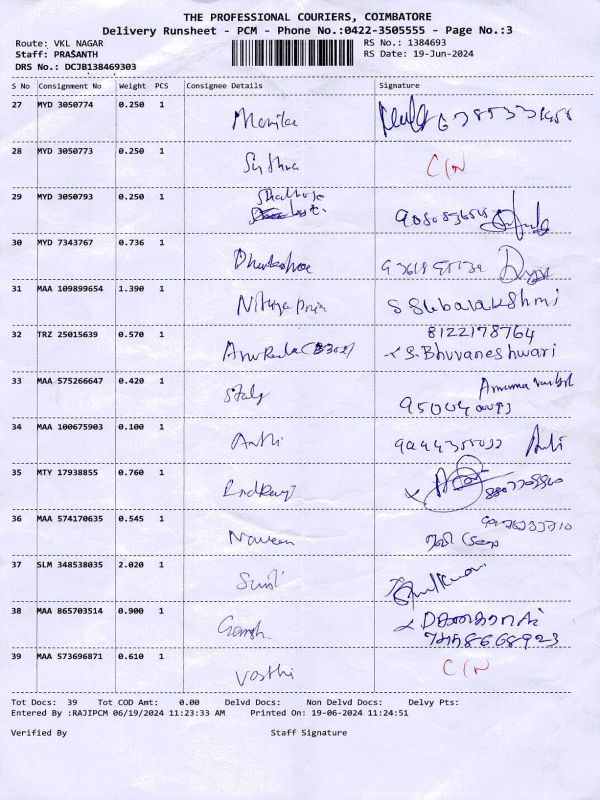 THE PROFESSIONAL COURIERS, COIMBATORE
Delivery Runsheet - PCM - Phone No.:0422-3505555 - Page No.:3
Route: VKL NAGAR RS No.: 1384693
Staff: PRASANTH RS Date: 19-Jun-2024
DRS No.: DCJB138469303
S No Consignment No Weight PCS Consignee Details Signature
27 MYD 3050774 0.250 1 Monika
28 MYD 3050773 0.250 1 C/N
29 MYD 3050793 0.250 1
30 MYD 7343767 0.736 1
31 MAA 109899654 1.390 1 Nithya Priya S Subalakshmi
32 TRZ 25015639 0.570 1 8122178764
S. Bhuvaneshwari
33 MAA 575266647 0.420 1
34 MAA 100675903 0.100 1
35 MTY 17938855 0.760 1
36 MAA 574170635 0.545 1 Naveen
37 SLM 348538035 2.020 1
38 MAA 865703514 0.900 1 Ganesh
39 MAA 573696871 0.610 1 Vasthi C/N
Tot Docs: 39 Tot COD Amt: 0.00 Delvd Docs: Non Delvd Docs: Delvy Pts:
Entered By :RAJIPCM 06/19/2024 11:23:33 AM Printed On: 19-06-2024 11:24:51
Verified By Staff Signature